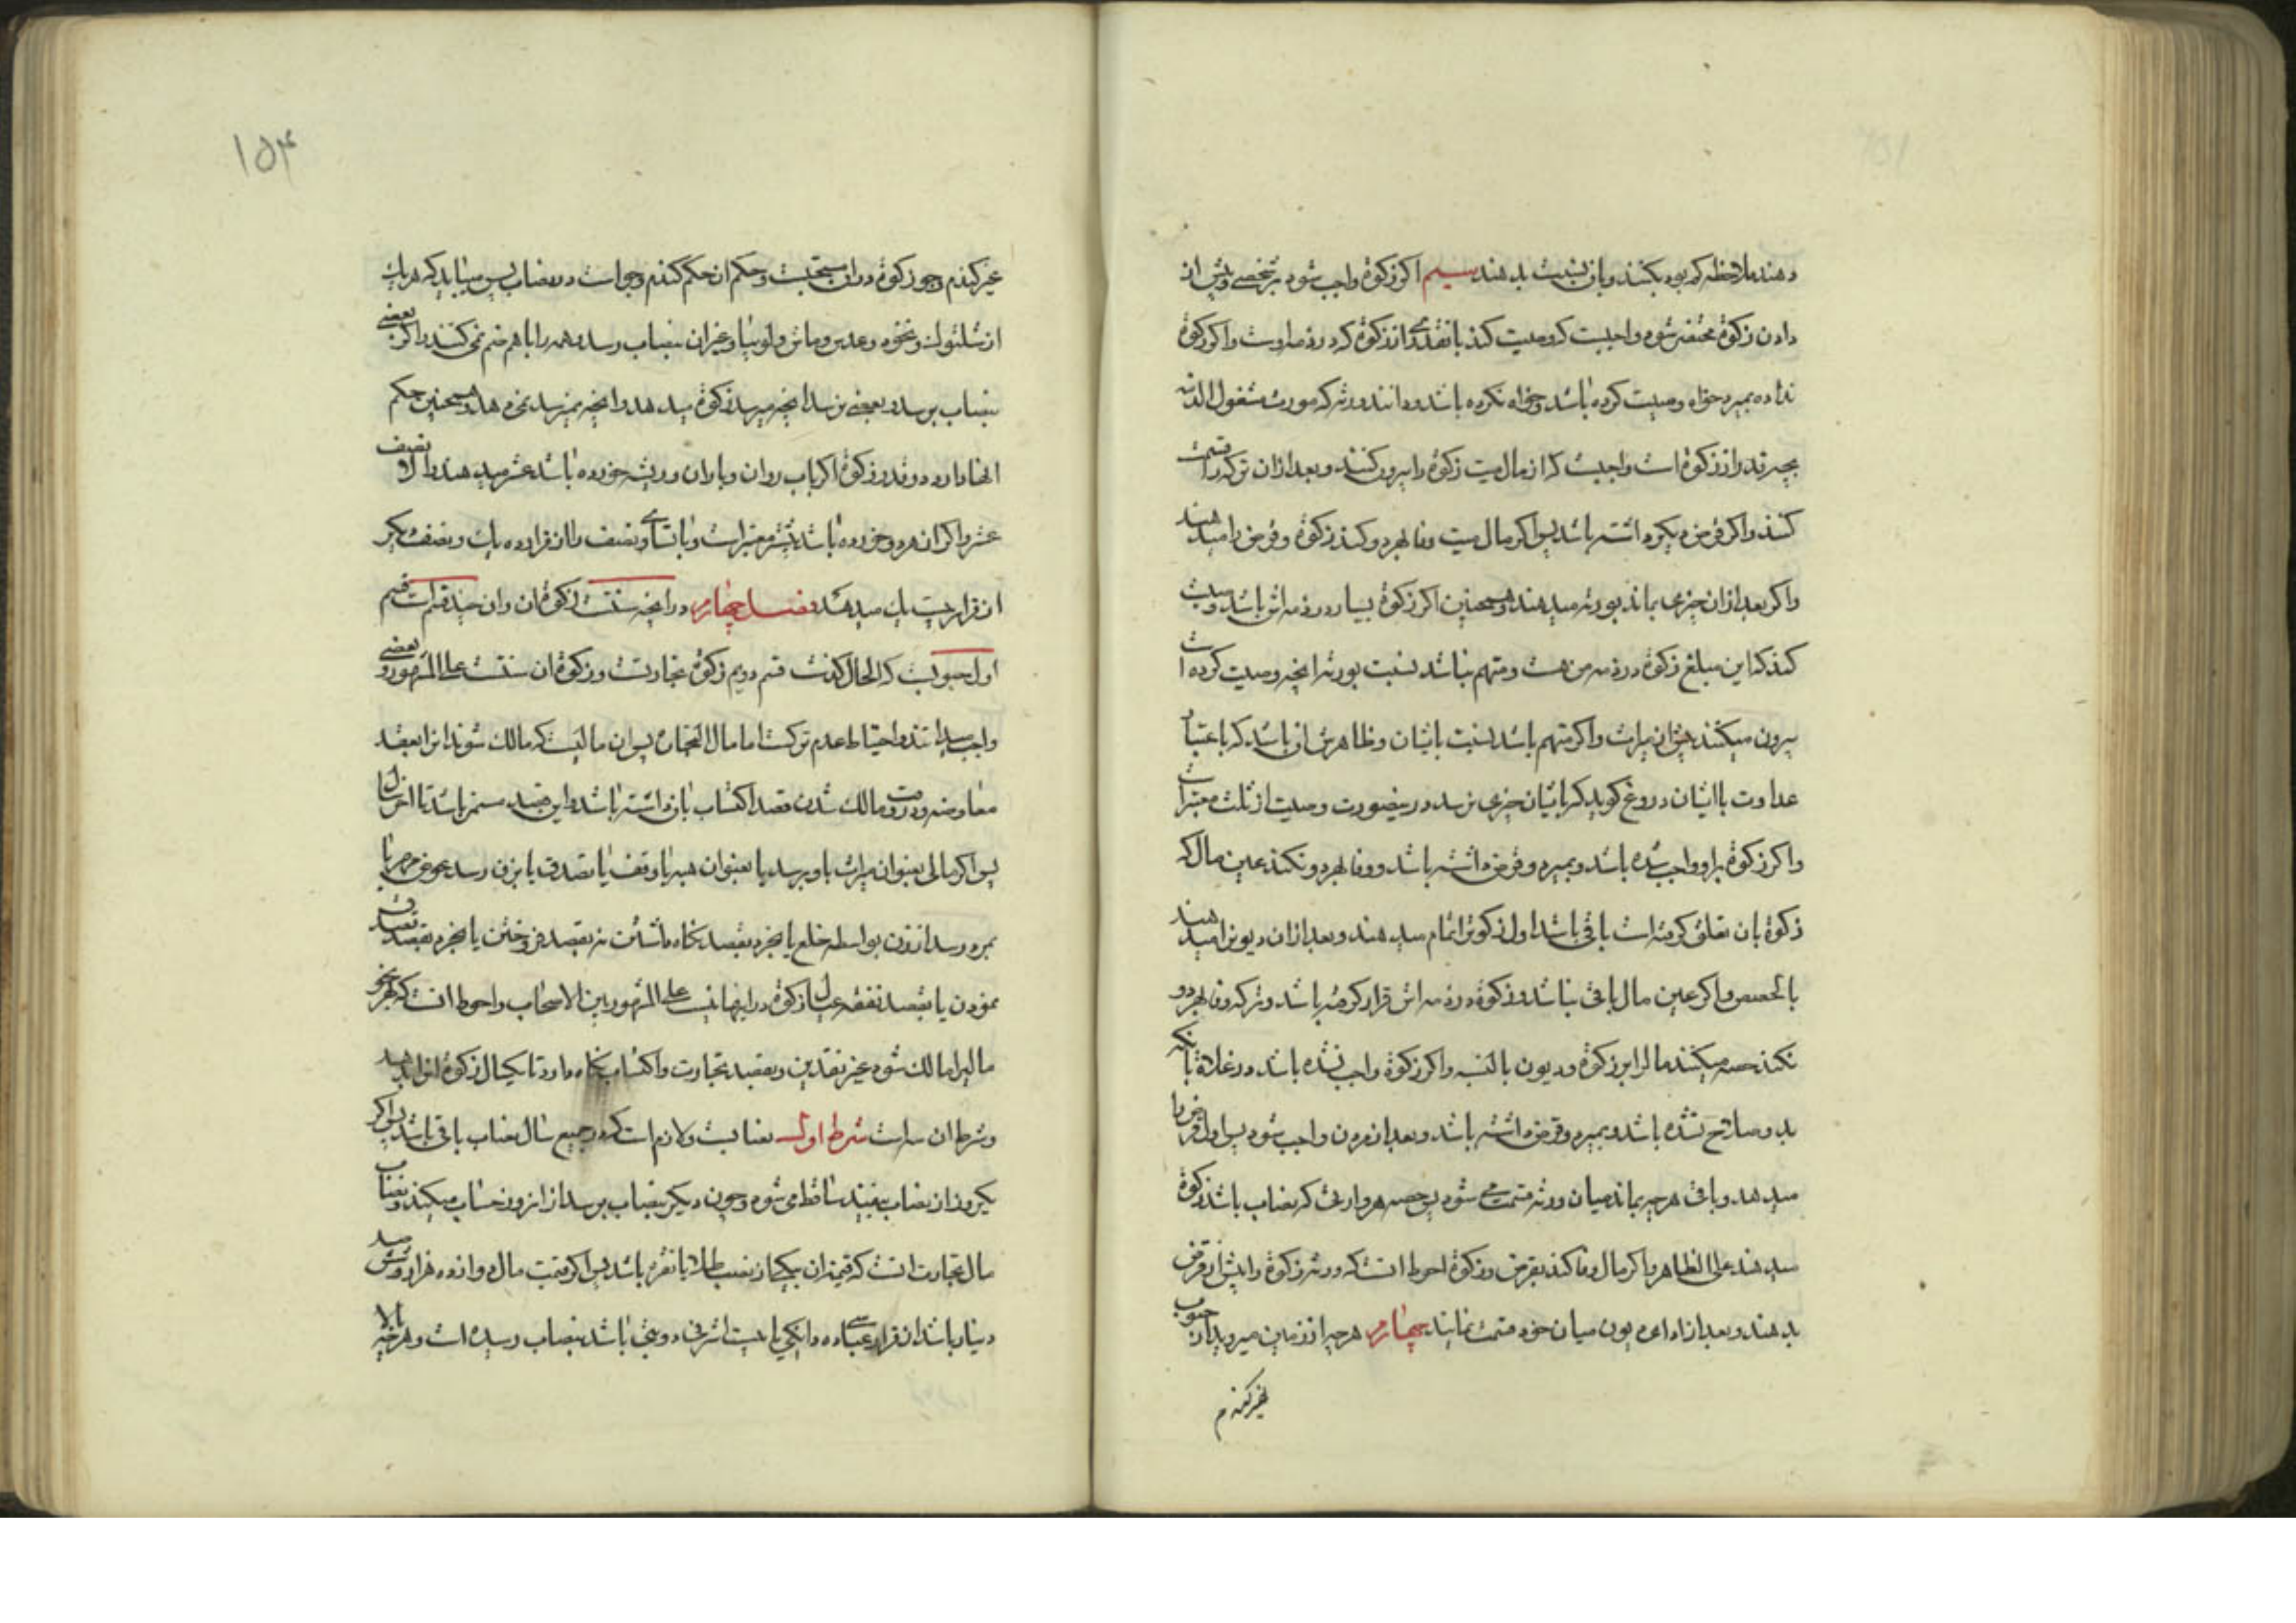 دهند ملاحظه کم بود بکنند و بان نسبت بدهند سیم اگر زکوة واجب شود بر شخصی و پیش از
دادن زکوة محتضر شود واجبست که وصیت کند بانقدر از زکوة که در ذمه اوست و اگر زکوة
نداده بمیرد خواه وصیت کرده باشد و خواه نکرده باشد و دانند ورثه که مورث مشغول الذمه
بچه قدر از زکوة است واجبست که از مال میت زکوة را بیرون کنند و بعد از آن ترکه را قسمت
کنند و اگر قرض دیگر داشته باشد پس اگر مال میت وفا بهر دو کند زکوة و قرض را میدهند
و اگر بعد از ان چیزی بماند بورثه میدهند و همچنین اگر زکوة بسیار در ذمه اش باشد و وصیت
کند که این مبلغ زکوة در ذمه من هست و متهم نباشد نسبت بورثه آنچه وصیت کرده است
بیرون میکنند پیش از میراث و اگر متهم باشد نسبت بایشان و ظاهرش ان باشد که باعتبار
عداوت با ایشان دروغ گوید که بایشان چیزی نرسد در ینصورت وصیت از ثلث معتبر است
و اگر زکوة براو واجب شده باشد و بمیرد و قرض داشته باشد و وفا بهر دو نکند عین مال که
زکوة بان تعلق گرفته است باقی باشد اول زکوتش اتمام میدهند و بعد از ان دیونرا میدهند
بالحصص و اگر عین مال باقی نباشد و زکوة در ذمه اش قرار گرفته باشد و ترکه وفا بهر دو
نکند حصه میکنند مالرا بر زکوة و دیون بالنسبه و اگر زکوة واجب نشده باشد در غلات بانکه
بدو صلاح نشده باشد و بمیرد و قرض داشته باشد و بعد از مردن واجب شود پس اول قرض را
میدهند و باقی هر چه بماند میان ورثه قسمت می شود پس حصه هر وارثی که بنصاب باشد زکوة
میدهند علی الظاهر و اگر مال وفا کند بقرض و زکوة احوط انست که ورثه زکوة را پیش از قرض
بدهند و بعد از ادای دیون میان خود قسمت نمایند چهارم هر چه از زمین میروید از حبوب
غیر گندم
۱۵۴
غیر گندم و جو زکوة در ان سنتست و حکم ان حکم گندم و جو است در نصاب پس میباید که هر یک
از شلتوک و نخود و عدس و ماش و لوبیا و غیر ان بنصاب رسد و همه را باهم ضم نمی کنند و اگر بعضی
بنصاب برسد و بعضی نرسد آنچه میرسد زکوة میدهد و آنچه نمیرسد نمیدهد و همچنین حکم
انها دارد در قدر زکوة اگر باب روان و باران و ریشه خورده باشد عشر میدهند و الا نصف
عشر و اگر از هر دو خورده باشد بیشتر معتبر است و با تساوی نصف را از قرار ده یک و نصف دیگر
از قرار بیست یک میدهند فصل چهارم در آنچه سنتست زکوة ان و ان چند قسم است قسم
اول حبوبست که الحال گذشت قسم دویم زکوة تجارتست و زکوة ان سنتست علی المشهور و بعضی
واجب میدانند و احتیاط عدم ترکست اما مال التجارة پس ان مالیست که مالک شوند انرا بعقد
معاوضه و در وقت مالک شدن قصد اکتساب بان داشته باشد و این قصد مستمر باشد تا آخر سال
پس اگر مالی بعنوان میراث باو برسد یا بعنوان هبه یا وقف یا تصدق یا بزن رسد عوض مهر یا
بمرد رسد از زن بواسطه خلع یا بخرد بقصد نگاه داشتن نه بقصد فروختن یا بخرد بقصد تصدق
نمودن یا بقصد نفقه عیال زکوة در اینها نیست علی المشهور بین الاصحاب و احوط انست که هر نحو
مالیرا مالک شود غیر نقدین و بقصد تجارت و اکتساب نگاه دارد تا یکسال زکوة انرا بدهد
و شرط ان سه است شرط اول نصابست و لازم است که در جمیع سال نصاب باقی باشد پس اگر
یکروز از نصاب بیفتد ساقط می شود و چون دیگر بنصاب برسد از انروز حساب میکند و نصاب
مال تجارت انست که قیمت ان بیکی از نصب طلا یا نقره باشد پس اگر قیمت مال دوازده هزار و ششصد
دینار باشد از قرار عباسی ده دانگی یا بیست اشرفی دو بتی باشد بنصاب رسیده است و هر چه بالا